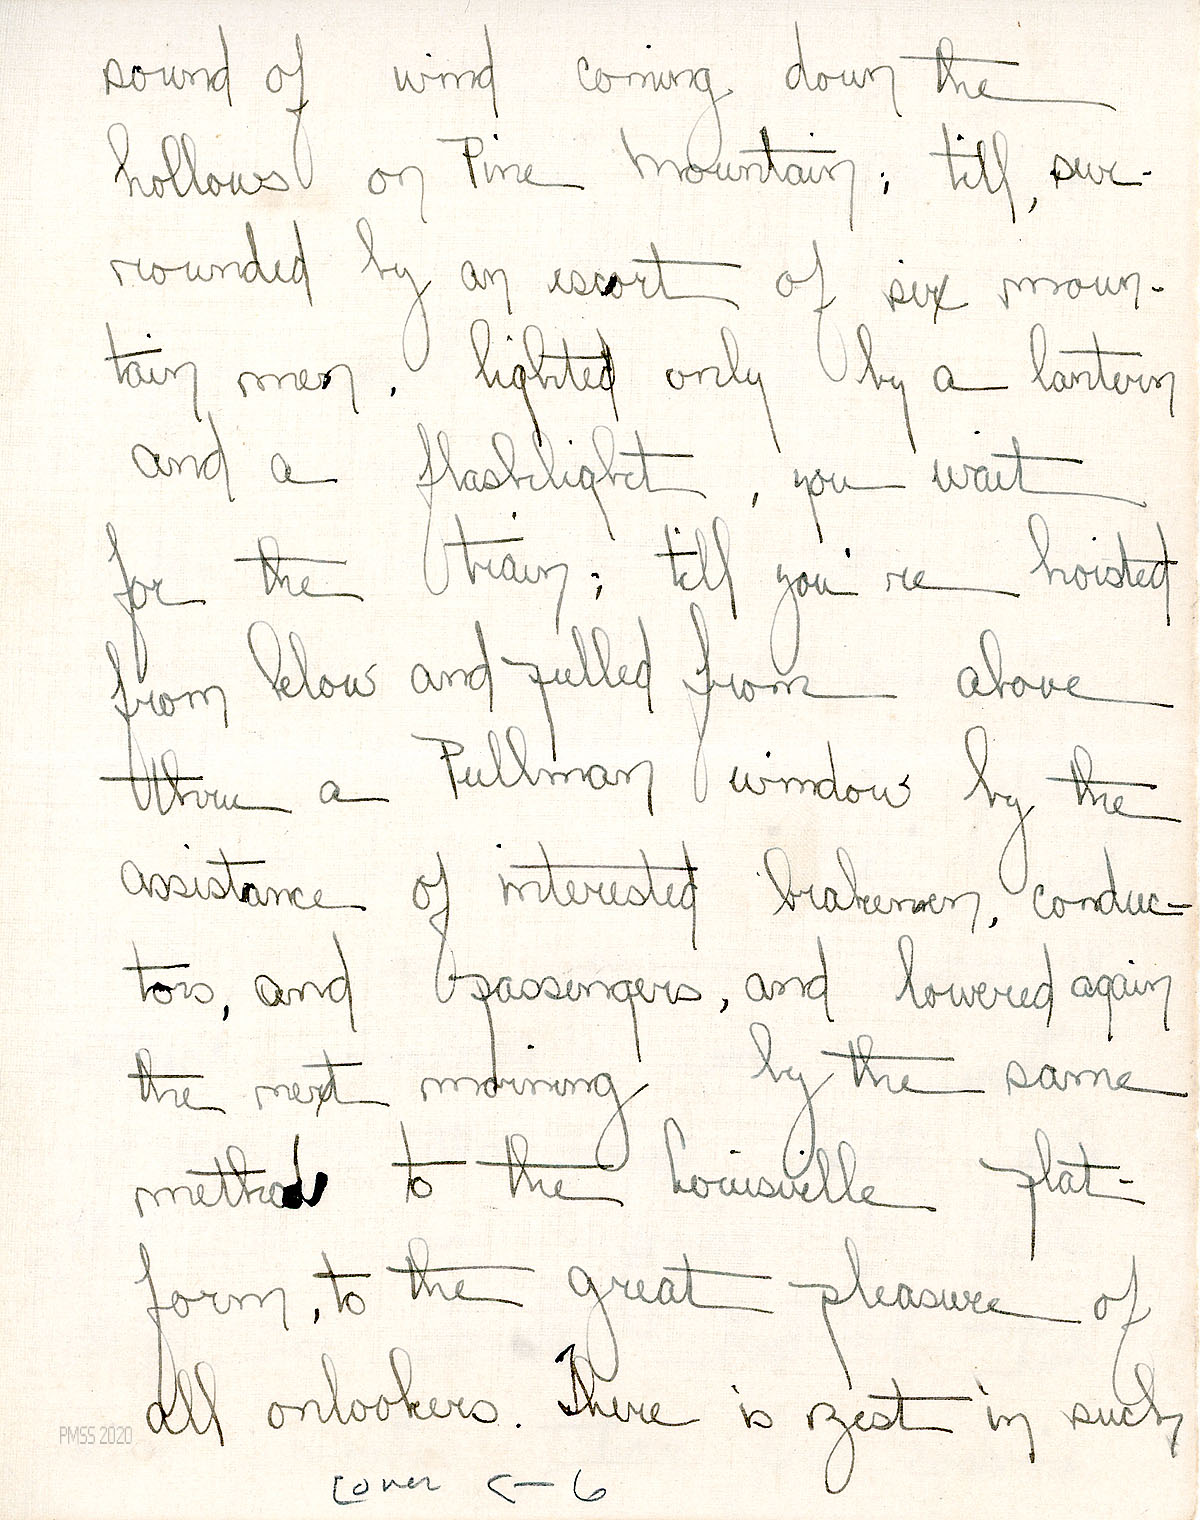 sound of wind coming down the
hollows on Pine Mountain; till, sur-
rounded by an escort of six moun-
tain men, lighted only by a lantern
and a flashlight, you wait
for the train; till you're hoisted
from below and pulled from above
thru a Pullman window by the
assistance of interested brakemen, conduc-
tors, and passengers, and lowered again
the next morning by the same
method to the Louisville plat-
form, to the great pleasure of
all onlookers. There is zest in such
PMSS 2020
cover 6